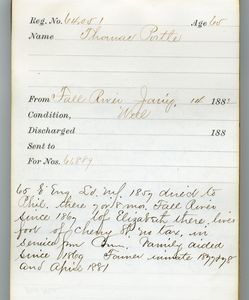 Reg. No. 64051 Age 65
Name Thomas Pottle
From Fall River Jany. 14 188
Condition, Well
Discharged 188
Sent to
For Nos. 66889
65 E Eng. Ld. 1859 direct to
Phil. there 7 or 8 mo. Fall River
since 1869 Elizabeth there, lives
foot of Cherry St. no tax, in
service fm Family aided
since 1869 Former inmate 1877 & 78
and April 1881